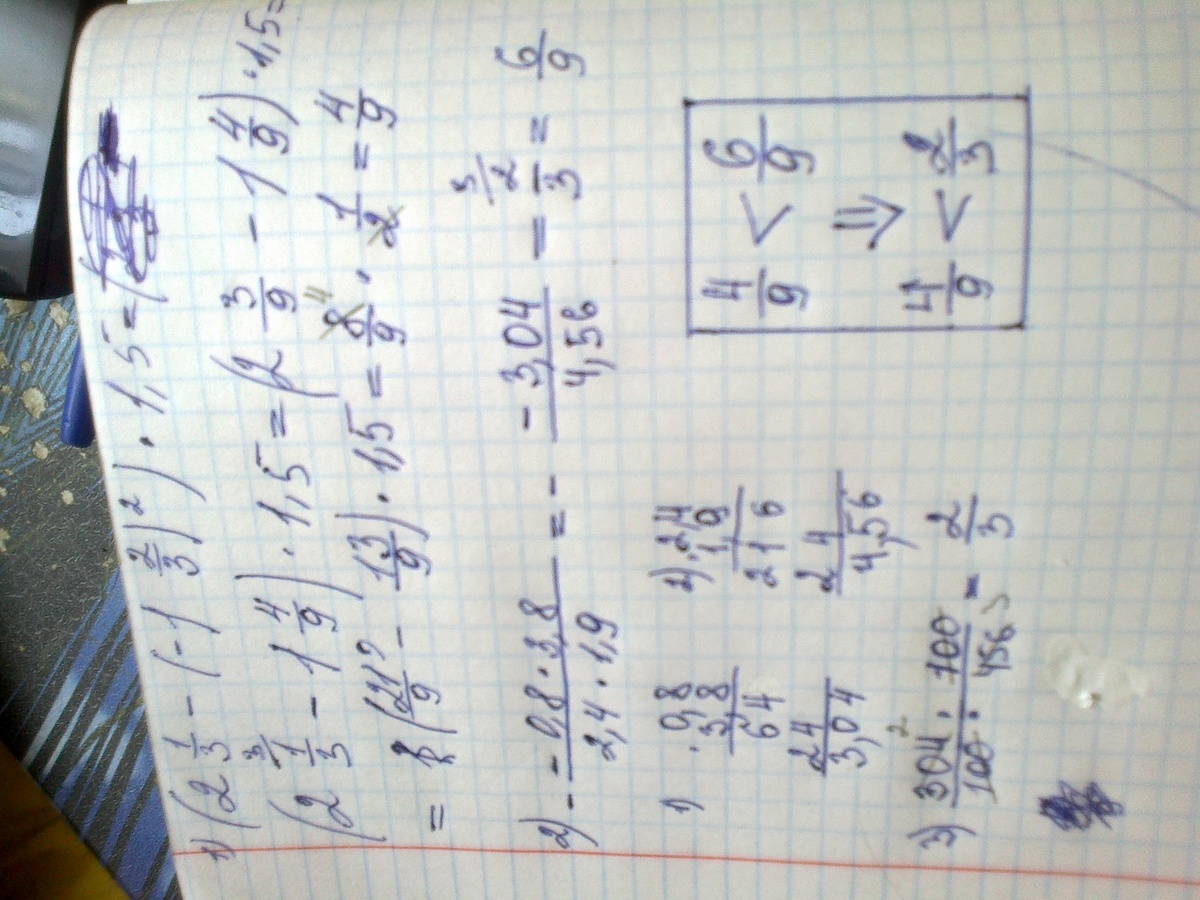 1) (2 1/3 - (-1 2/3)²) · 1,5 =
(2 1/3 - 1 4/9) · 1,5 = (2 3/9 - 1 4/9) · 1,5 =
= (21/9 - 13/9) · 1,5 = 8/9 · 1/2 = 4/9
2) - - 0,8 · 3,8 / 2,4 · 1,9 = - - 3,04 / 4,56 = 2/3 = 6/9
1) · 0,8
3,8
64
24
3,04
2) · 2,4
1,9
216
24
4,56
4/9 < 6/9
⇓
4/9 < 2/3
3) 304 · 100 / 100 · 456 = 2/3